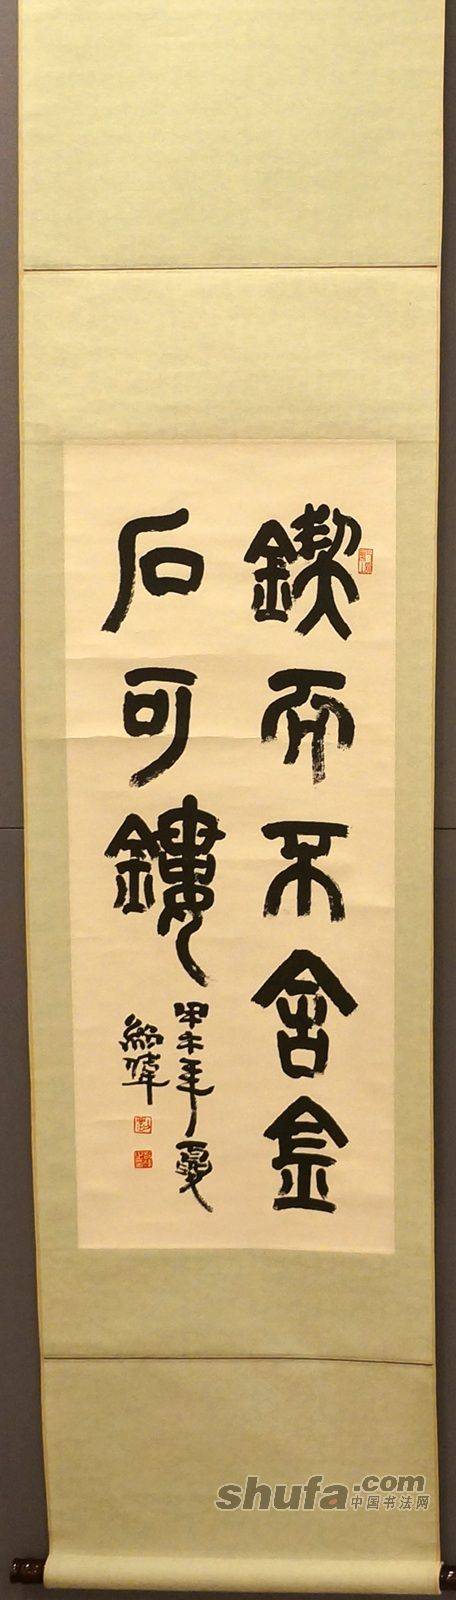 鍥而不舍金
石可鏤
甲午年夏
shufa.com
中国书法网